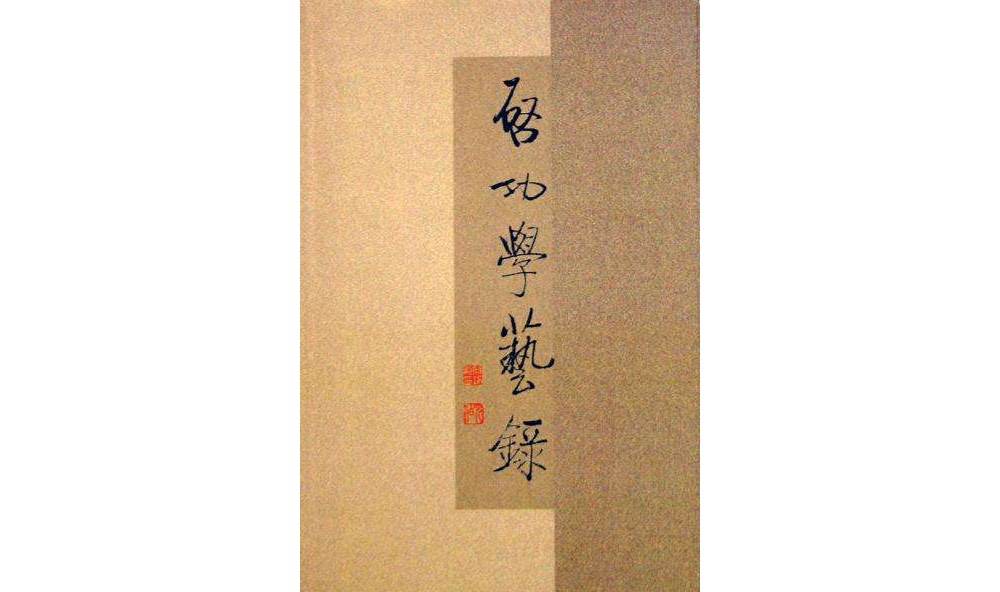 啓功學藝録